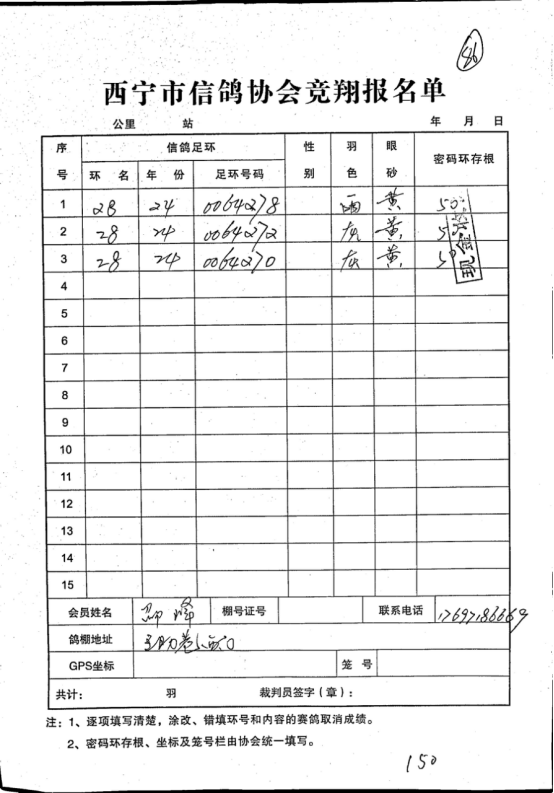 86
西宁市信鸽协会竞翔报名单
公里 站 年 月 日
序号 信鸽足环 性别 羽色 眼砂 密码环存根
环名 年份 足环号码
1 28 24 0064278 雨 黄 50
2 28 24 0064272 灰 黄 5
3 28 24 0064270 灰 黄 50
现金
4
5
6
7
8
9
10
11
12
13
14
15
会员姓名 棚号证号 联系电话 17697186669
鸽棚地址
GPS坐标 笼号
共计: 羽 裁判员签字(章):
注:1、逐项填写清楚,涂改、错填环号和内容的赛鸽取消成绩。
2、密码环存根、坐标及笼号栏由协会统一填写。
150